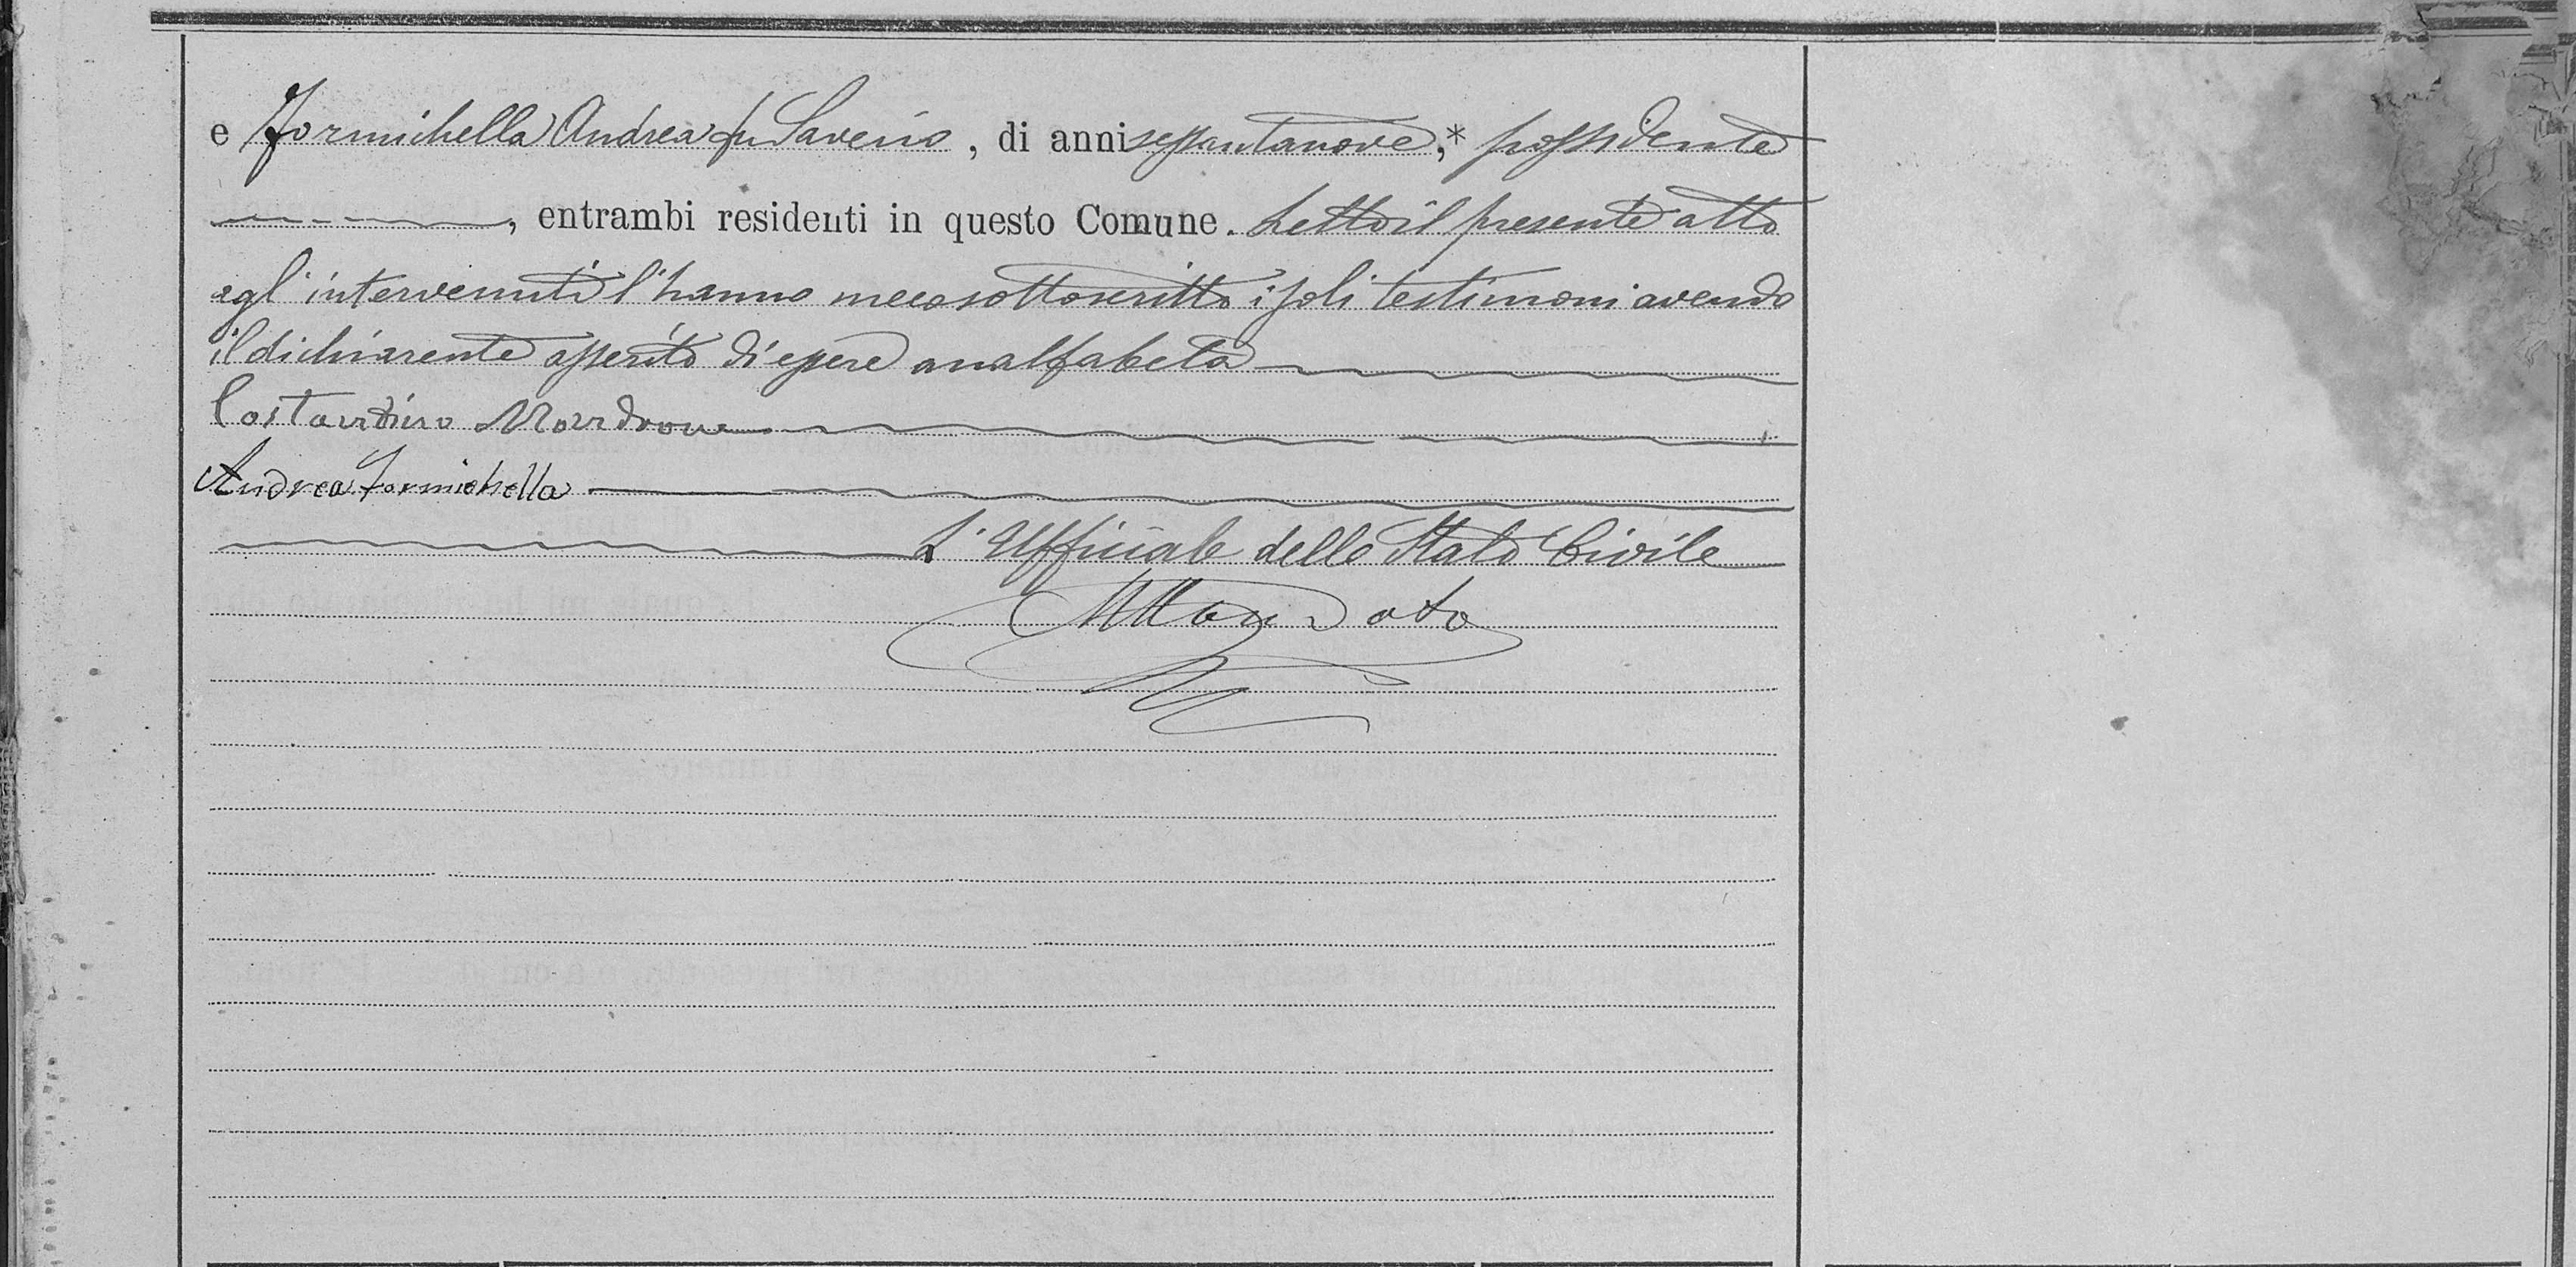 e Formichella Andrea fu Saverio, di anni sessantanove,* possidente
, entrambi residenti in questo Comune. Letto il presente atto
agl'intervenuti l'hanno meco sottoscritto i soli testimoni avendo
il dichiarente asserito di essere analfabeta
Costantino Mandrone
Andrea Formichella
L'Uffiziale dello Stato Civile